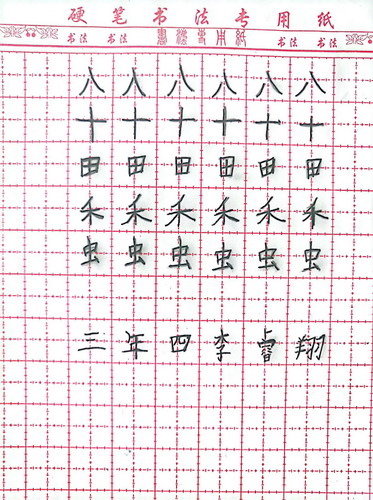 硬笔书法专用纸
书法 书法 書法专用纸 书法 书法
八八八八八八
十十十十十十
田田田田田田
禾禾禾禾禾禾
虫虫虫虫虫虫
三年四李睿翔